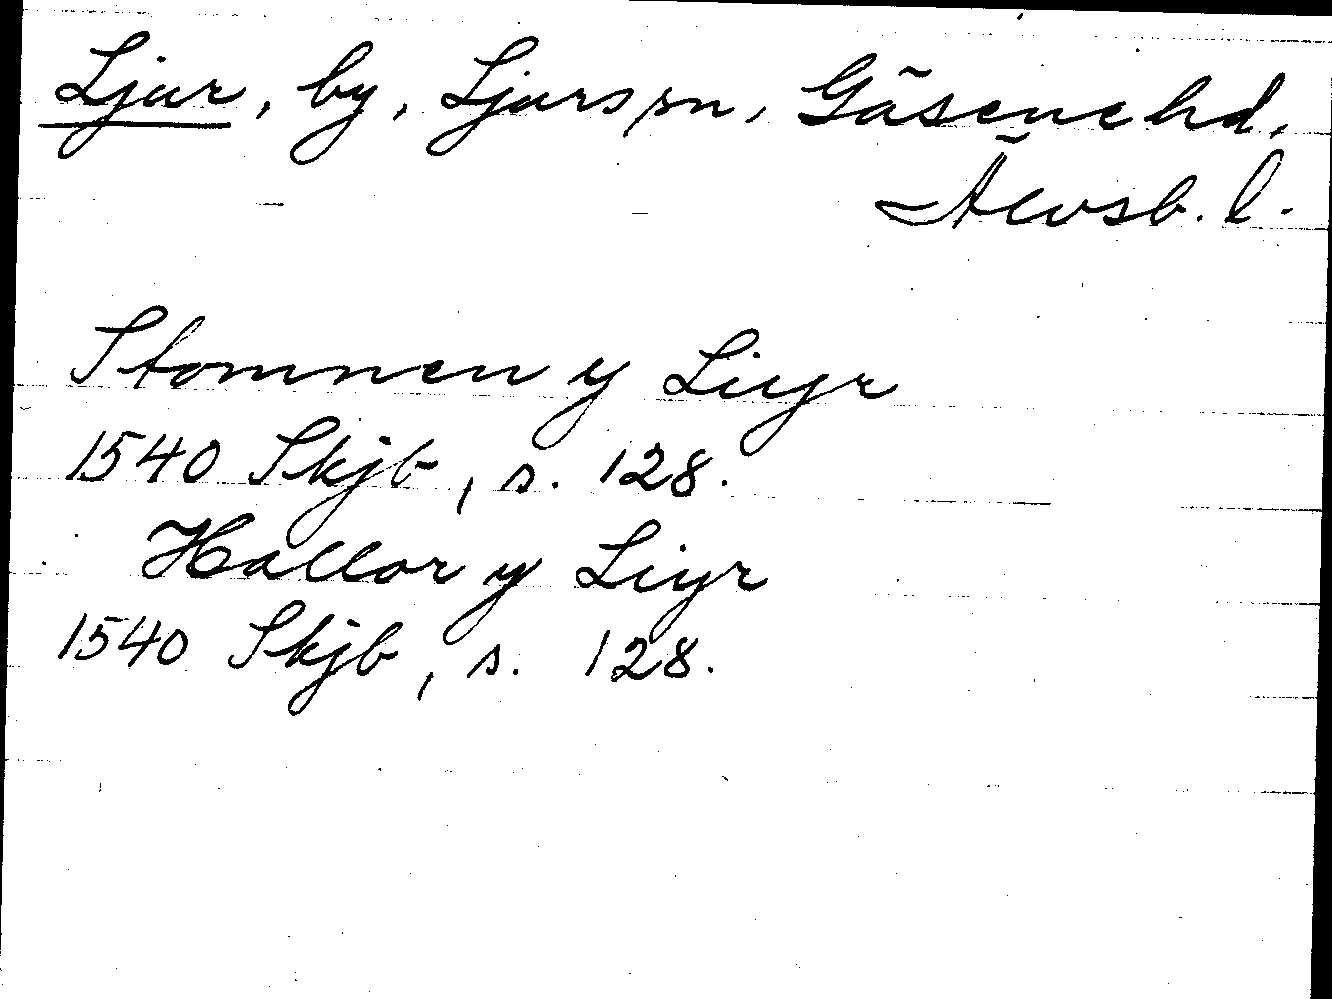 Ljur, by, Ljurs sn, Gäsene hd,
Älvsb. l.
Stommen y Liyr
1540 Skjb, s. 128.
Hallor y Liyr
1540 Skjb, s. 128.